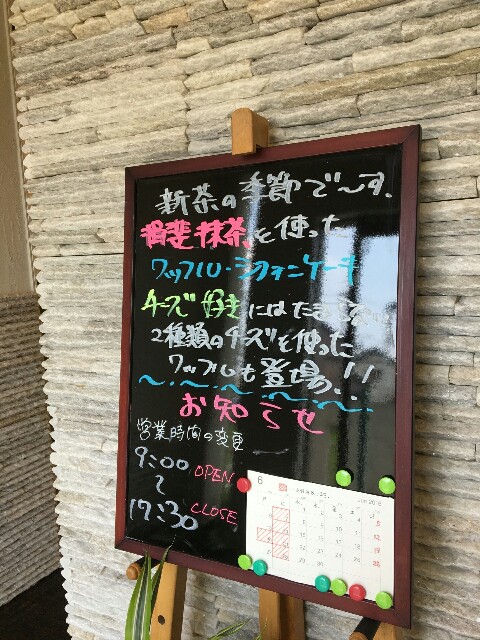 新茶の季節で〜す。
揖斐抹茶を使った
ワッフル・シフォンケーキ
チーズ好きにはたまらない
2種類のチーズを使った
ワッフルも登場!!
お知らせ
営業時間の変更
9:00 OPEN
〜
17:30 CLOSE
6